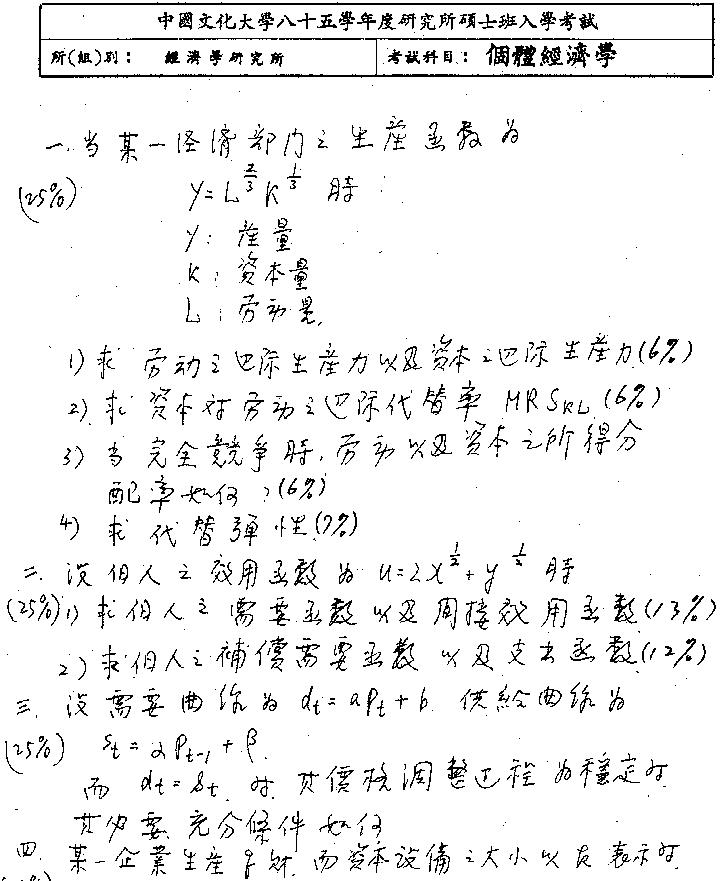 中國文化大學八十五學年度研究所碩士班入學考試
所(組)別: 經濟學研究所 考試科目: 個體經濟學
一.当某一経済部门之生産函数为
(25%) y=L^{2/3}K^{1/3} 時
y: 産量
K: 資本量
L: 劳动量
1) 求劳动之边际生産力以及資本之边际生産力(6%)
2) 求資本对劳动之边际代替率 MRS_{KL} (6%)
3) 当完全競争時,劳动以及資本之所得分
配率如何?(6%)
4) 求代替弾性(7%)
二.设個人之效用函数为 u=2x^{1/2}+y^{1/2} 時
(25%) 1) 求個人之需要函数以及间接效用函数(13%)
2) 求個人之補償需要函数以及支出函数(12%)
三.设需要曲线为 d_t=aP_t+b 供給曲线为
(25%) S_t=αP_{t-1}+β
而 d_t=S_t 时 其價格调整过程为穩定时
其必要充分條件如何
四.某一企業生産 財,而資本設備之大小以 表示时